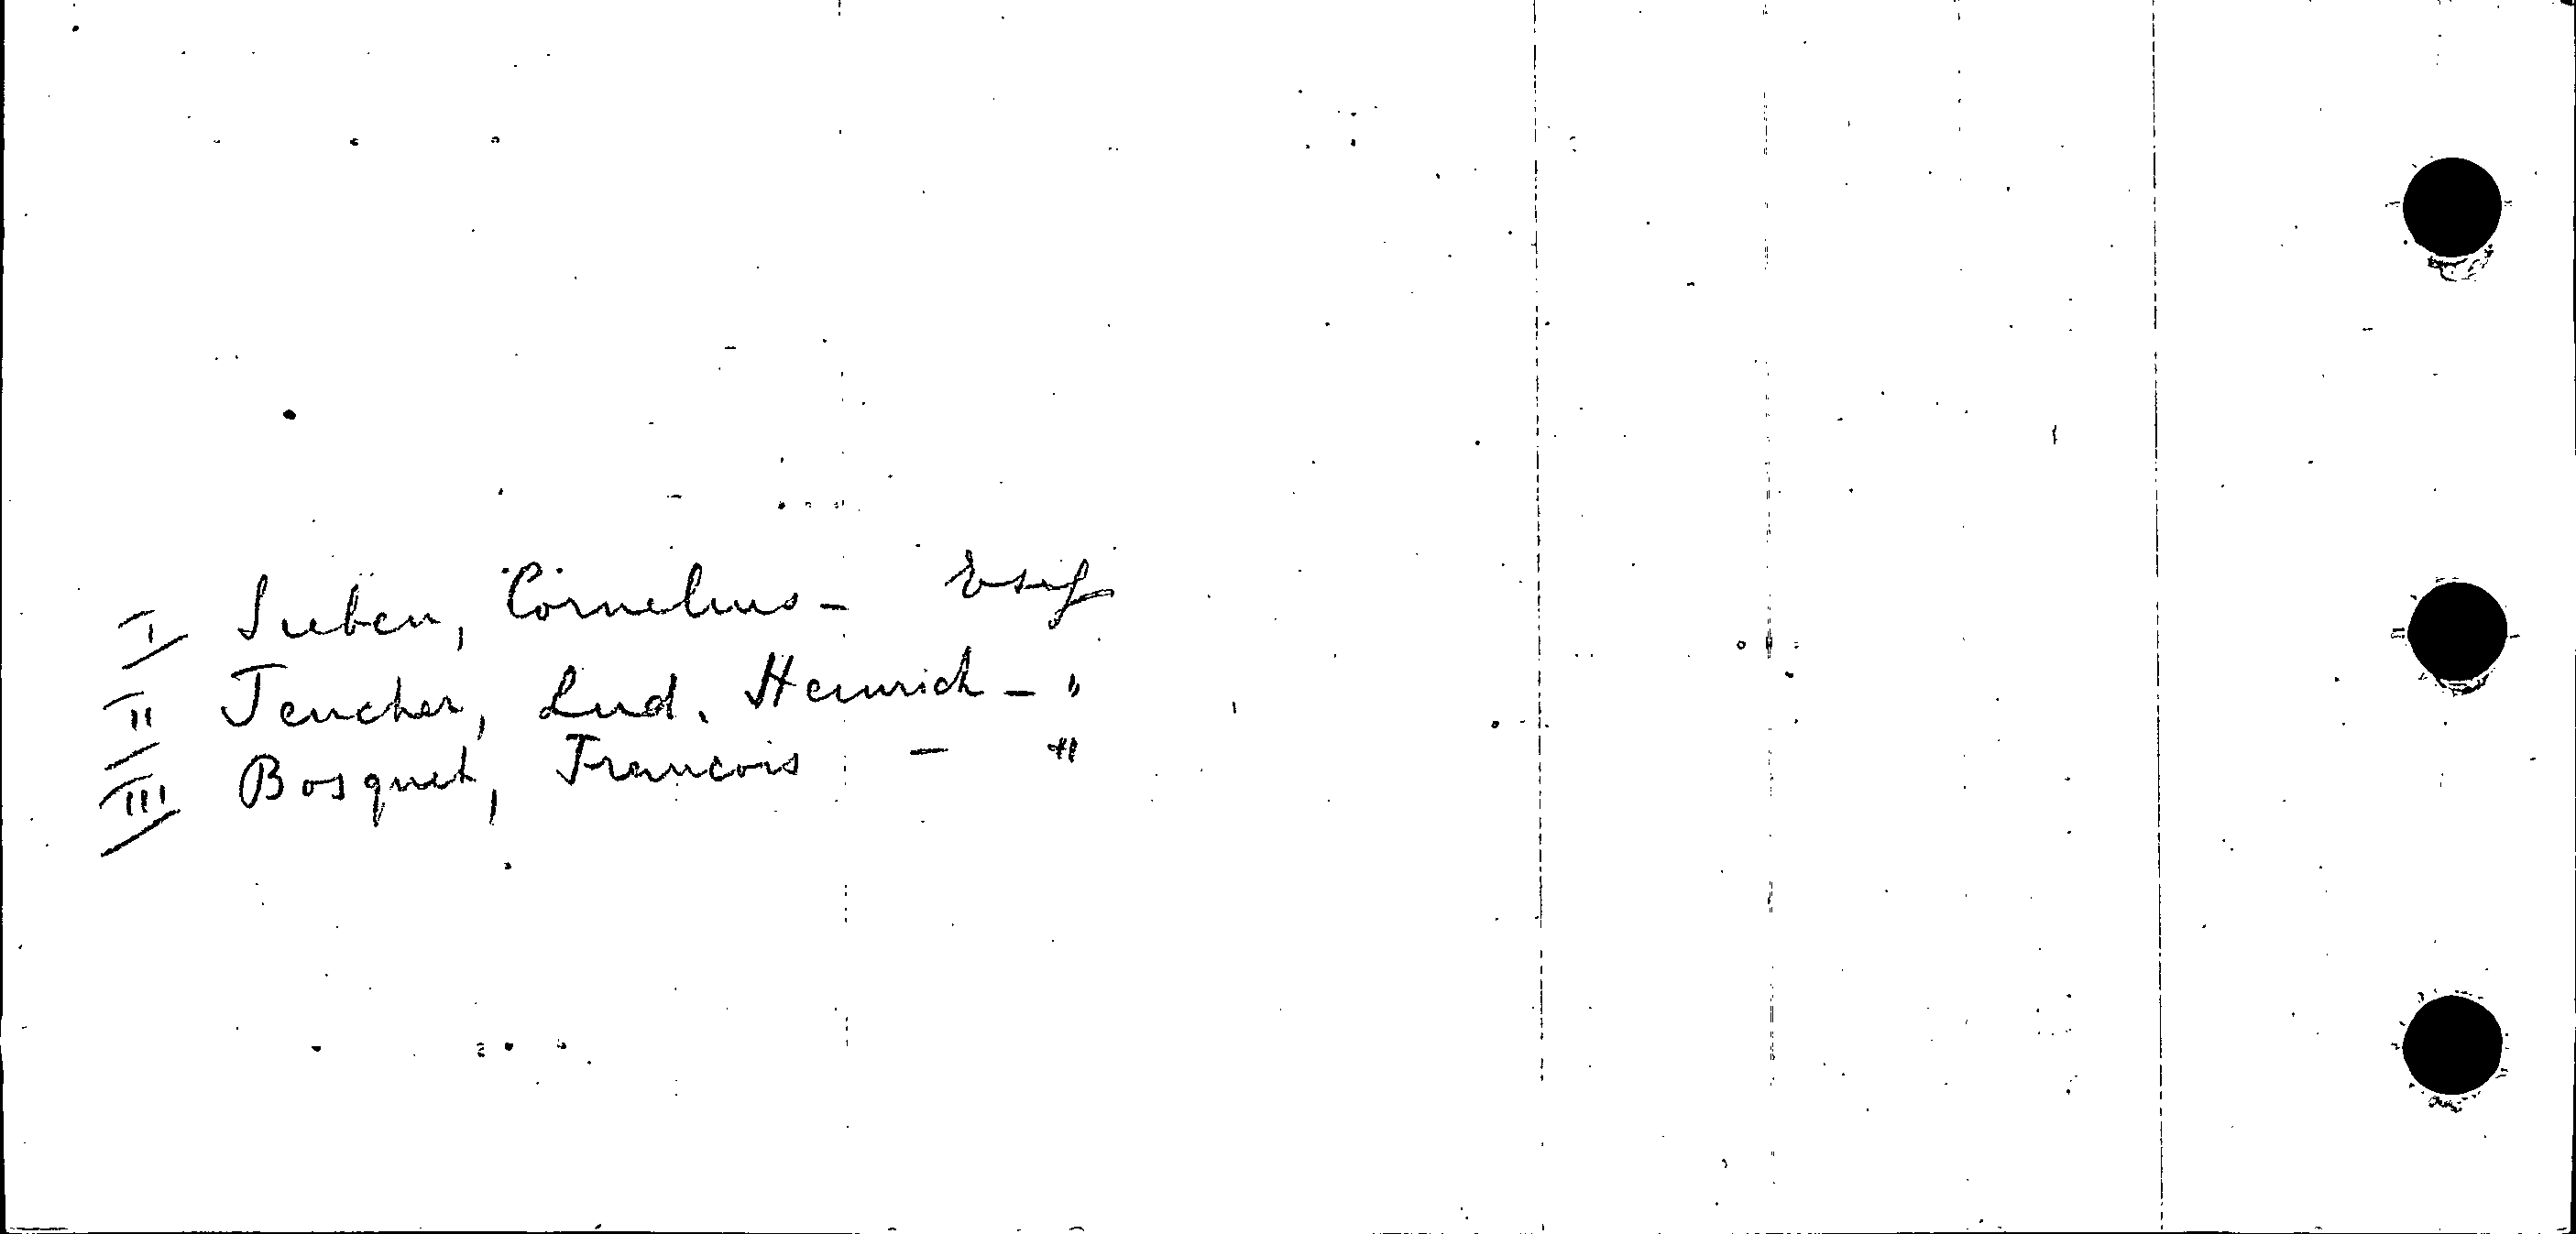 I Sieben, Cornelius -
II Jencher, Lud. Heinrich - "
III Bosquet, Francois - "